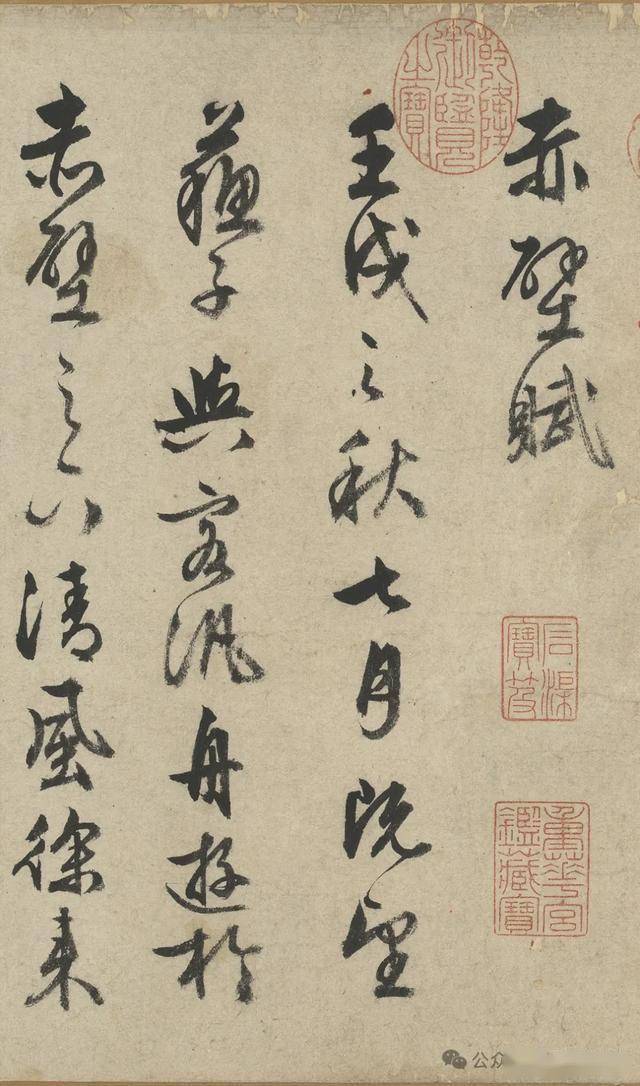 赤壁賦
壬戌之秋七月既望
蘇子與客汎舟遊於
赤壁之下清風徐来
乾隆御覽之寶
石渠寶笈
重華宮鑑藏寶
公众